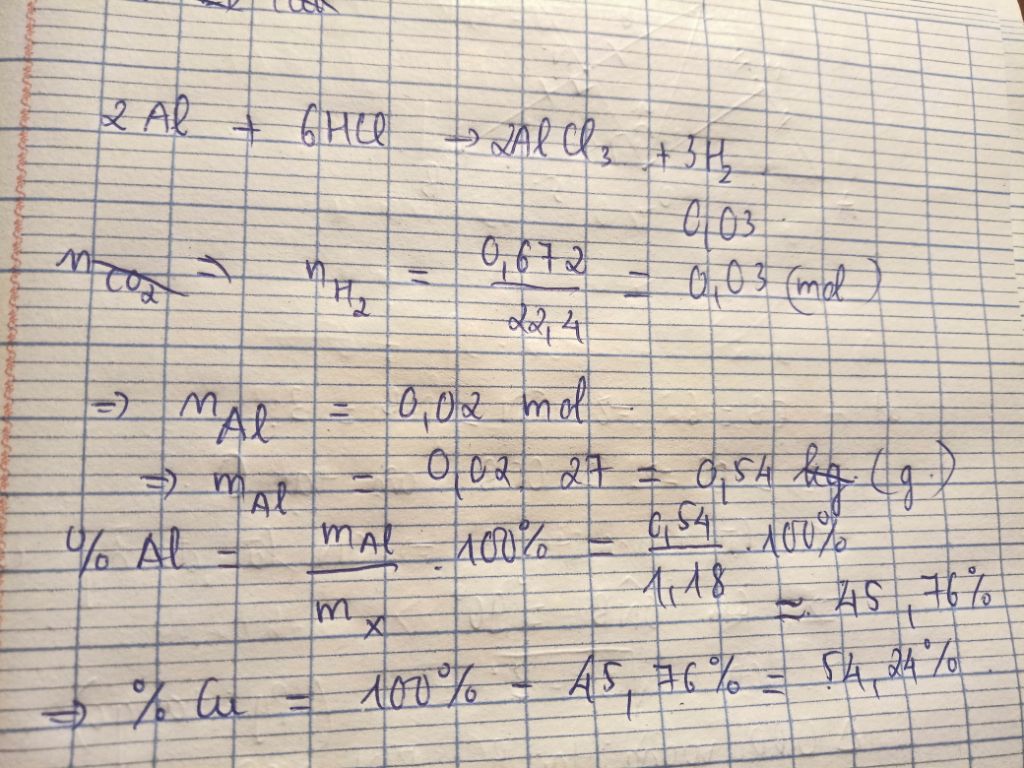 2Al + 6HCl → 2AlCl₃ + 3H₂
0,03
n_CO₂ ⇒ n_H₂ = 0,672/22,4 = 0,03 (mol)
⇒ n_Al = 0,02 mol
⇒ m_Al = 0,02 27 = 0,54 kg (g.)
% Al = m_Al/m_x . 100% = 0,54/1,18 . 100%
≈ 45,76%
⇒ % Cu = 100% - 45,76% = 54,24%